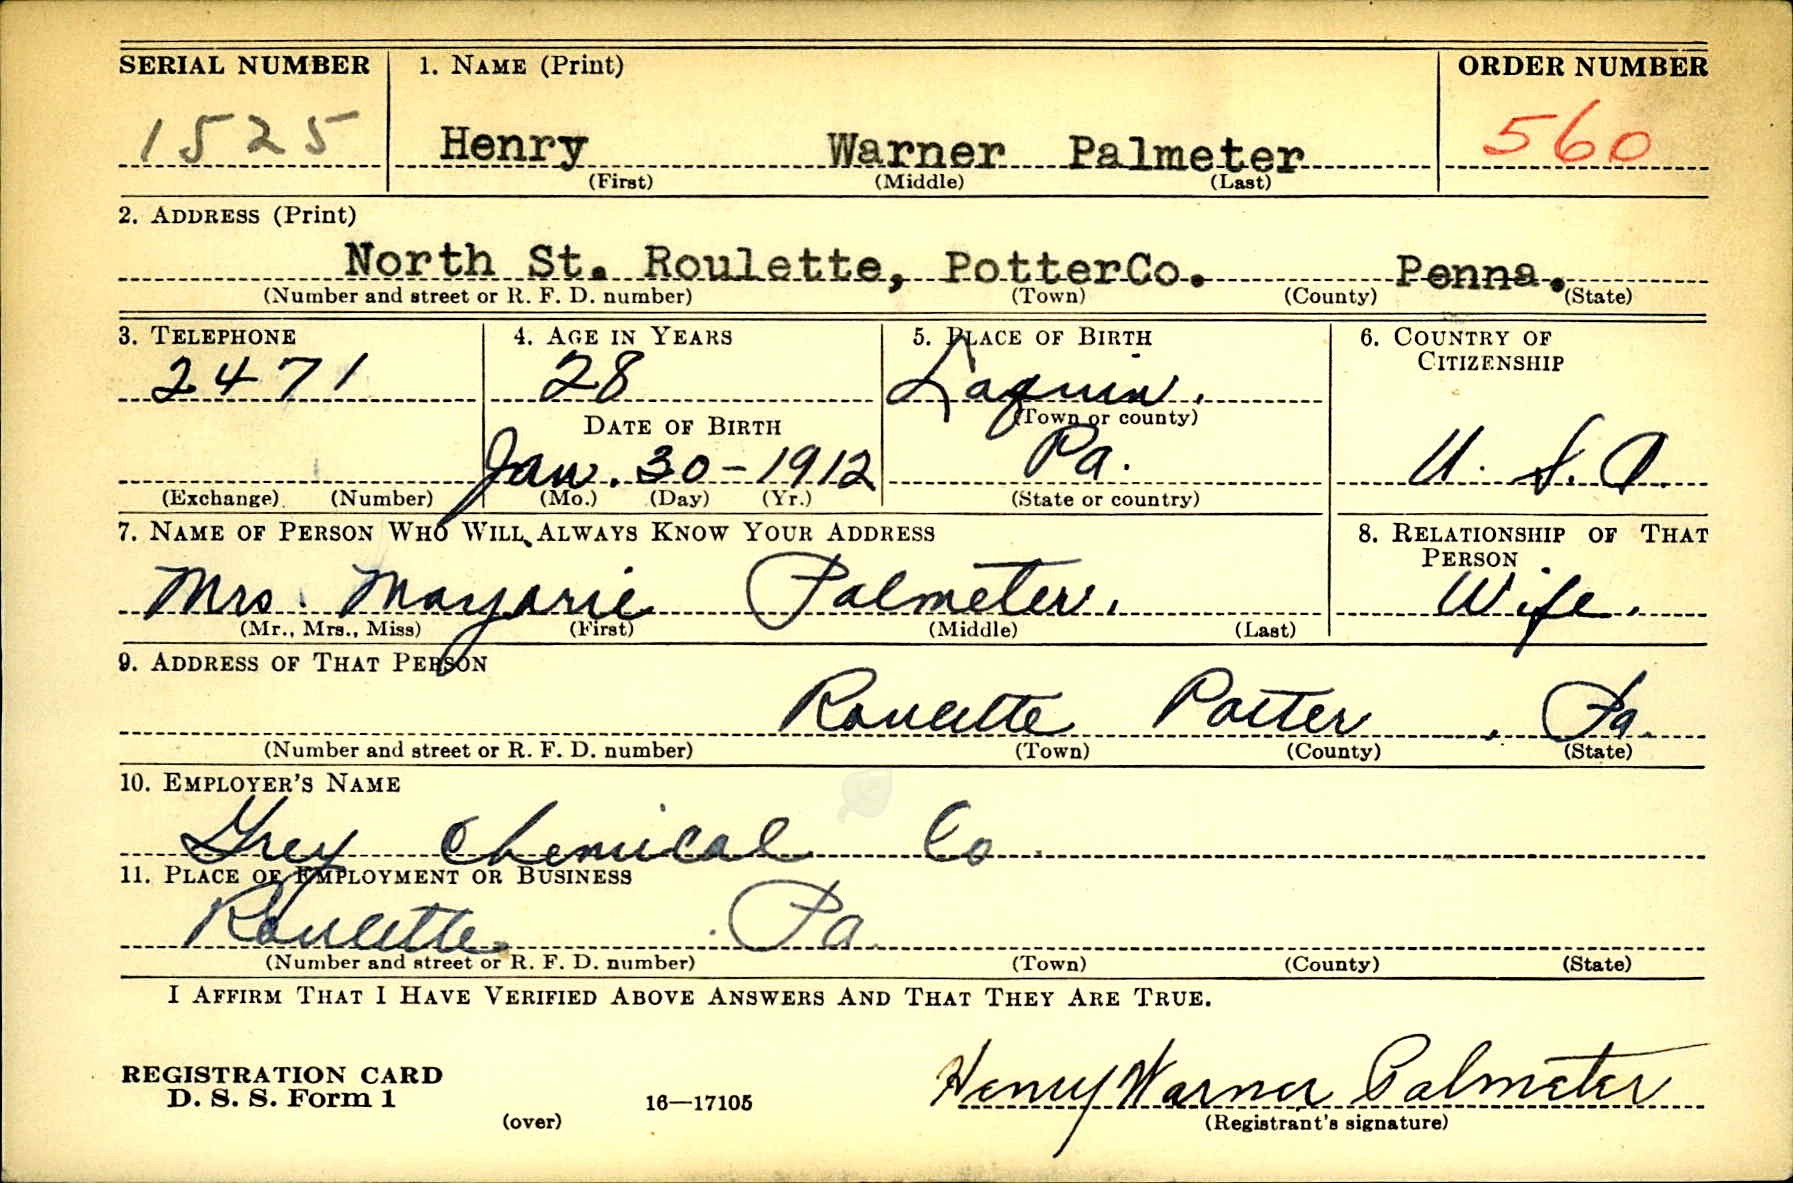 SERIAL NUMBER 1. NAME (Print) ORDER NUMBER
1525 Henry Warner Palmeter 560
(First) (Middle) (Last)
2. ADDRESS (Print)
North St. Roulette, PotterCo. Penna.
(Number and street or R. F. D. number) (Town) (County) (State)
3. TELEPHONE 4. AGE IN YEARS 5. PLACE OF BIRTH 6. COUNTRY OF CITIZENSHIP
2471 28 Laquin.
DATE OF BIRTH (Town or county)
Jan. 30-1912 Pa. U. S. A.
(Exchange) (Number) (Mo.) (Day) (Yr.) (State or country)
7. NAME OF PERSON WHO WILL ALWAYS KNOW YOUR ADDRESS 8. RELATIONSHIP OF THAT PERSON
Mrs. Marjorie Palmeter. Wife.
(Mr., Mrs., Miss) (First) (Middle) (Last)
9. ADDRESS OF THAT PERSON
Roulette Potter, Pa.
(Number and street or R. F. D. number) (Town) (County) (State)
10. EMPLOYER'S NAME
Grey Chemical Co.
11. PLACE OF EMPLOYMENT OR BUSINESS
Roulette. Pa.
(Number and street or R. F. D. number) (Town) (County) (State)
I AFFIRM THAT I HAVE VERIFIED ABOVE ANSWERS AND THAT THEY ARE TRUE.
REGISTRATION CARD Henry Warner Palmeter
D. S. S. Form 1 16—17105
(over) (Registrant's signature)